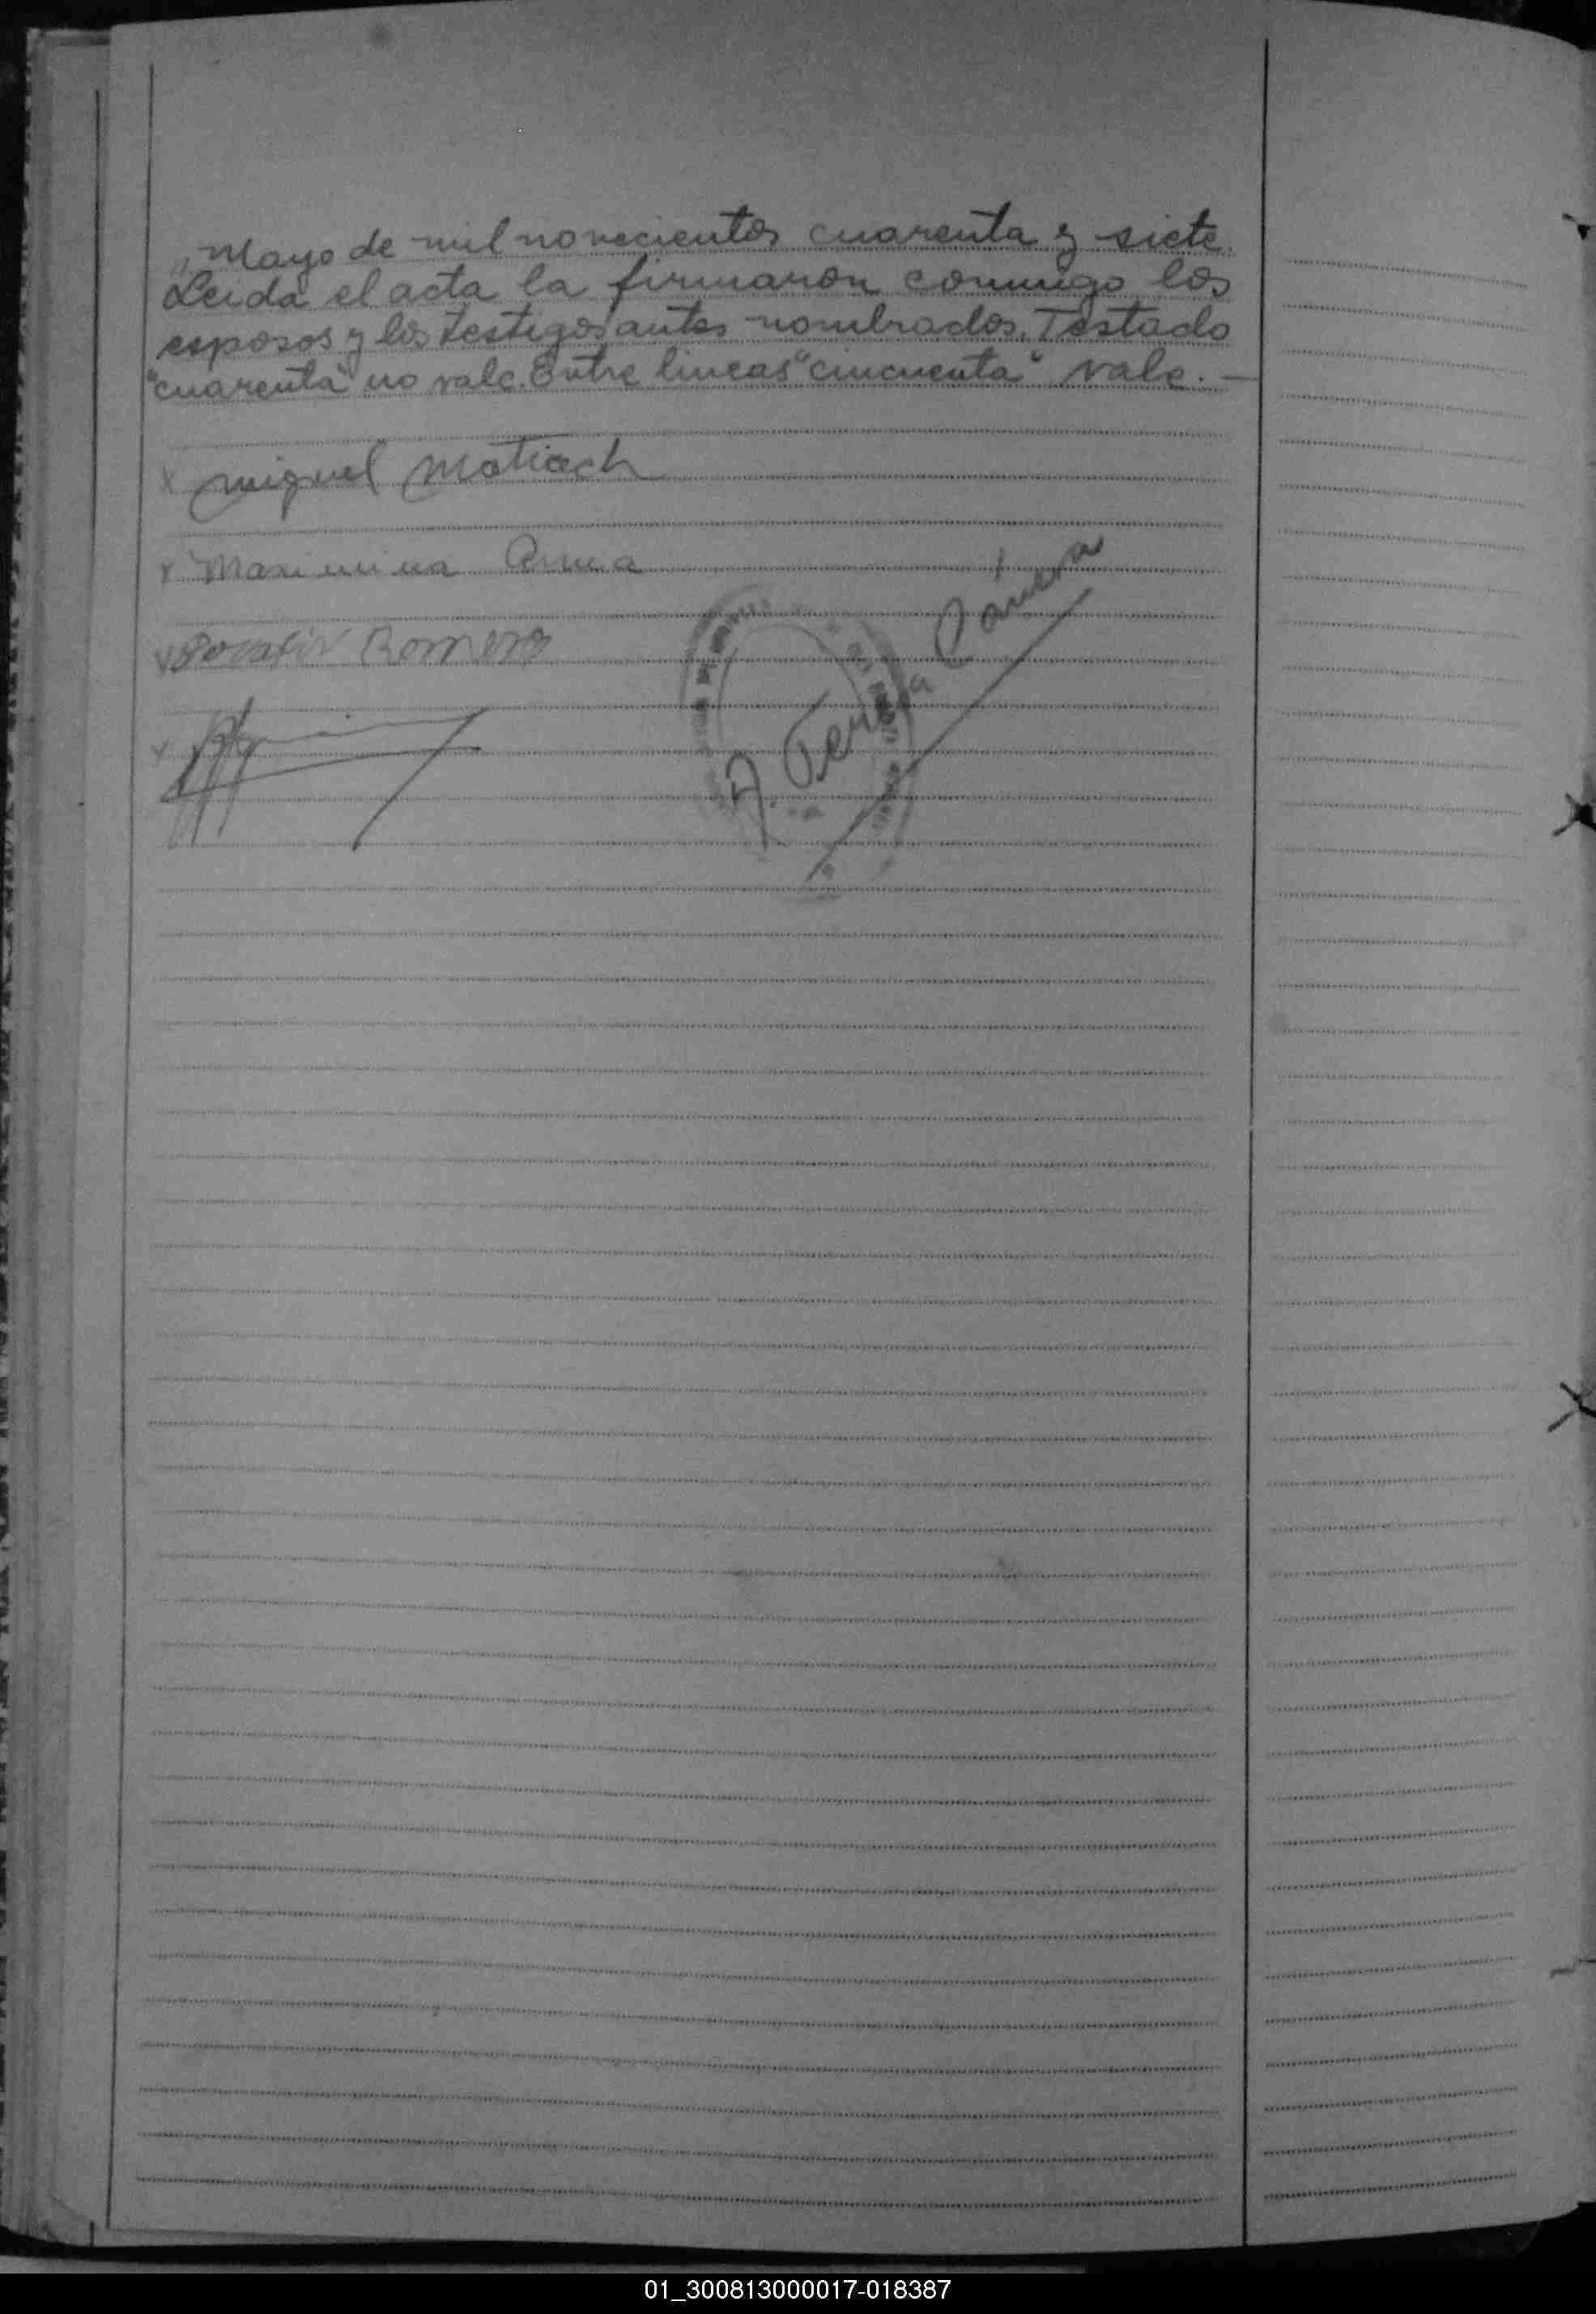 „ Mayo de mil novecientos cuarenta y siete.
Leida el acta la firmaron conmigo los
esposos y los testigos antes nombrados. Testado
"cuarenta" no vale. Entre lineas "cincuenta" vale. —
x miguel Matiach
x Maximina
x Romero
x
A. Ferreira
01_300813000017-018387